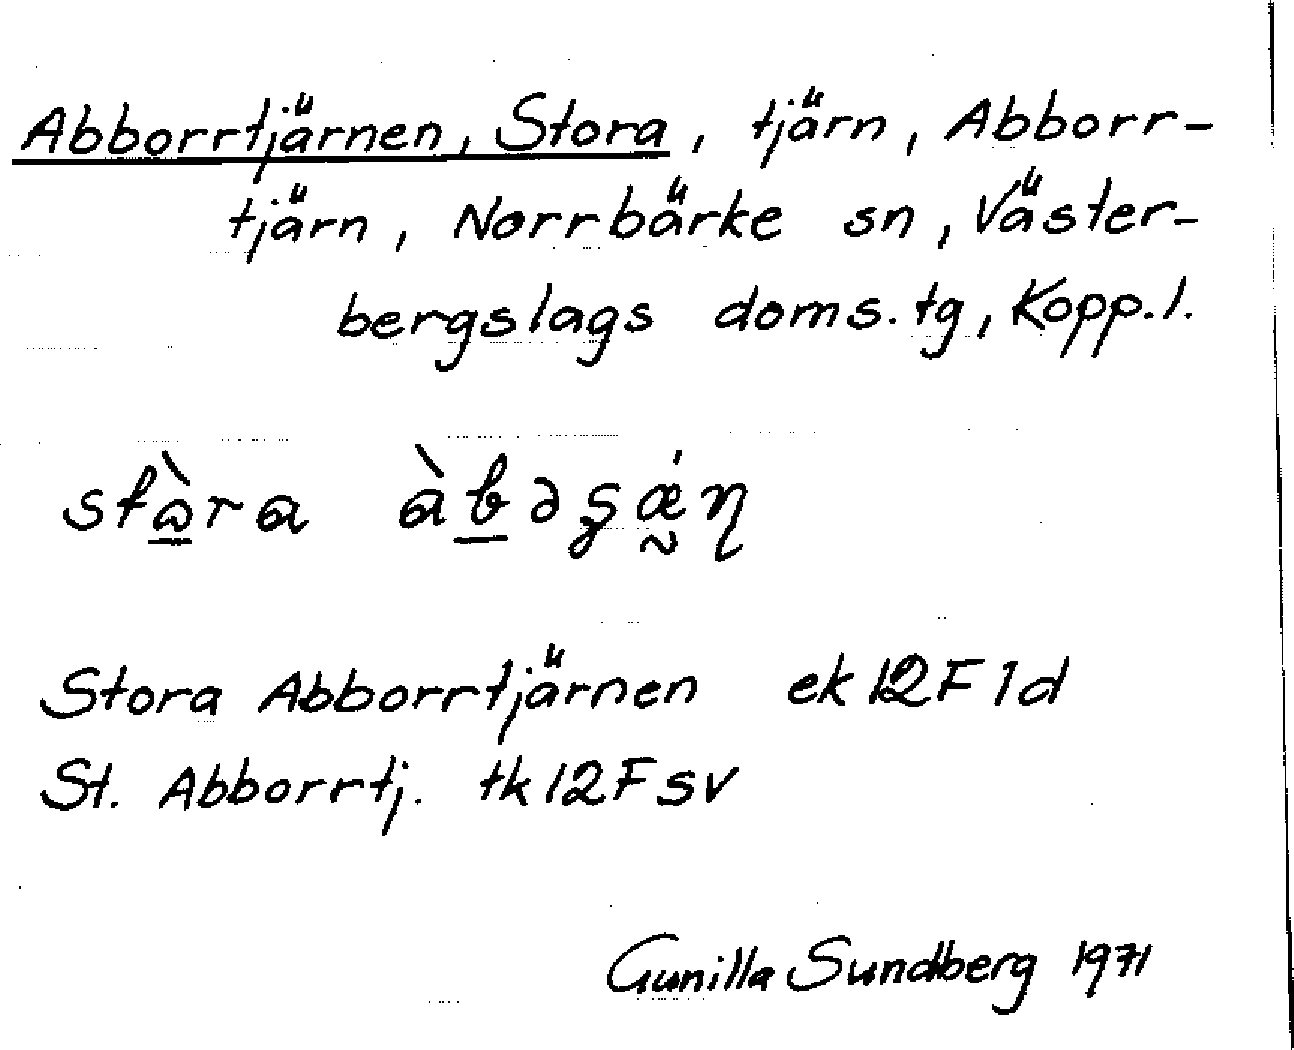 Abborrtjärnen, Stora, tjärn, Abborr-
tjärn, Norrbärke sn, Väster-
bergslags doms. tg, Kopp. l.
Stora Abborrtjärnen ek 12F 1d
St. Abborrtj. tk 12F sv
Gunilla Sundberg 1971